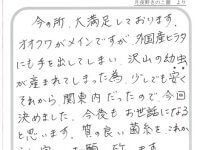 月夜野きのこ園 より
今の所、大満足しております。
オオクワがメインですが、外国産ヒラタ
にも手を出してしまい、沢山の幼虫
が産まれてしまった為、少しでも安く
それから関東内だったので今回
決めました。今後もお世話になる
と思います。質の良い菌糸をこれか